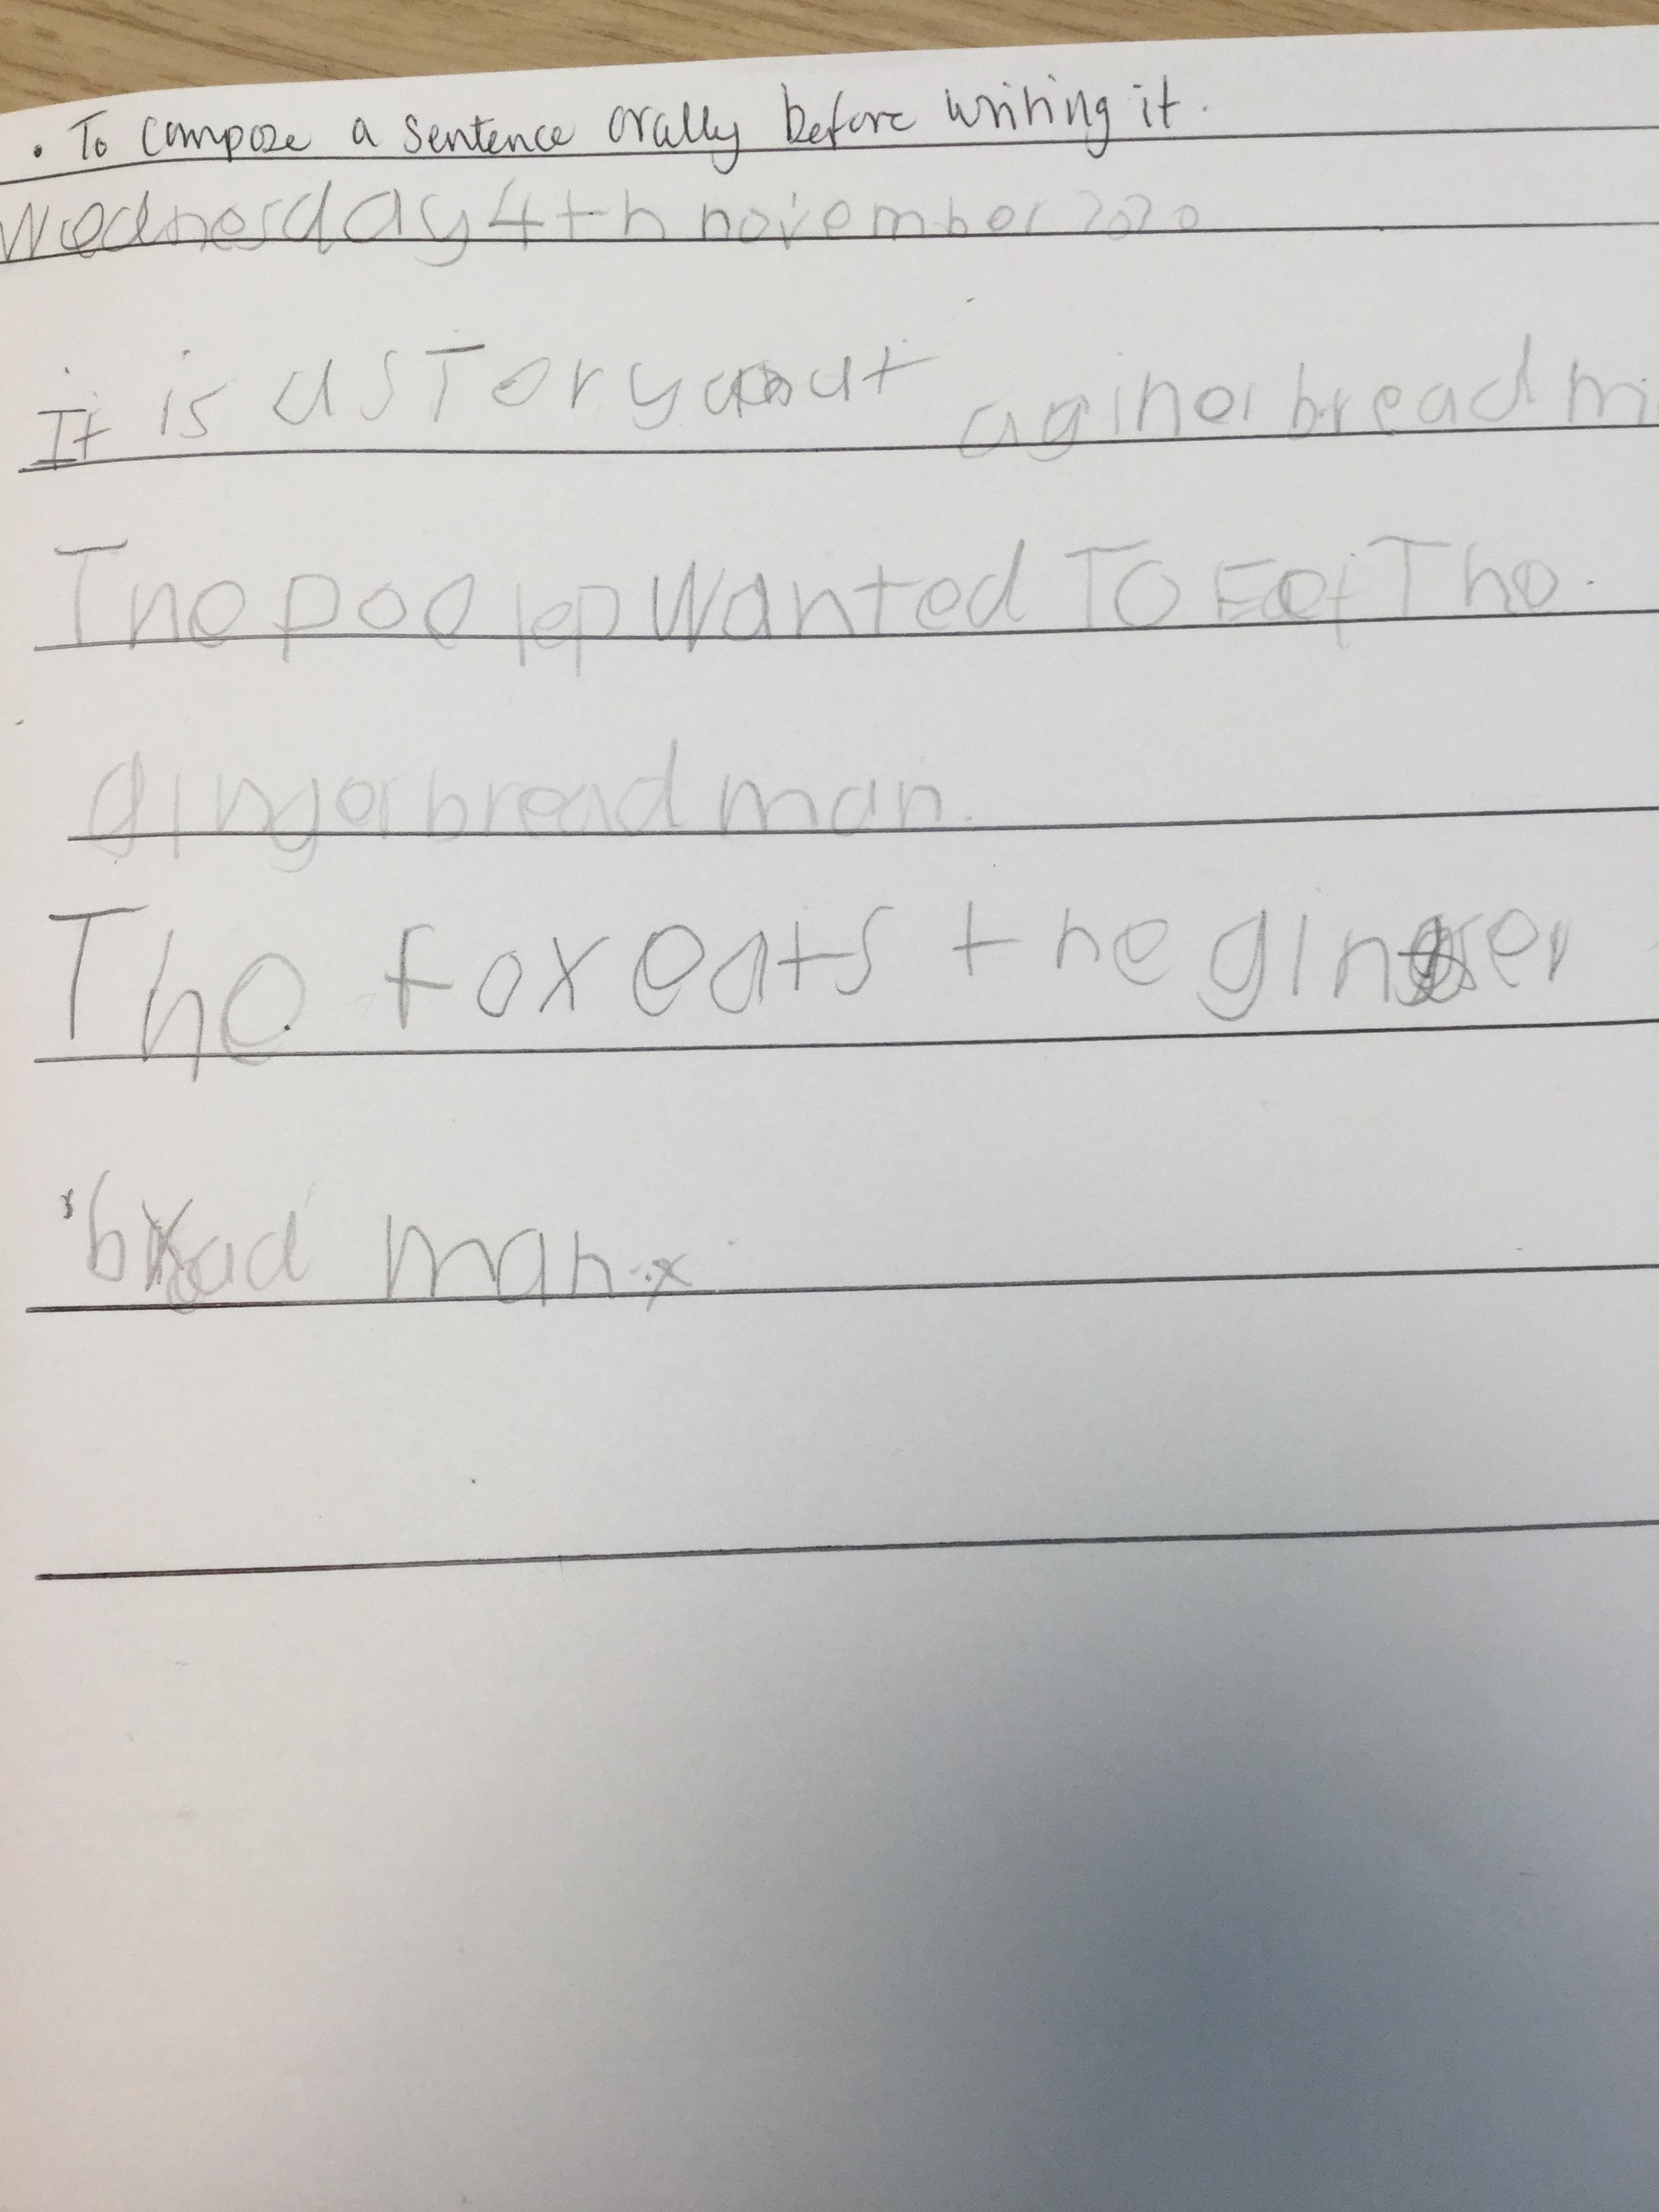 . To compose a sentence orally before writing it.
Wednesday 4th november 2020
It is a sTory about a ginerbread
The poolep Wanted To Eat The.
gingerbread man.
The fox eats the ginger
bread man.